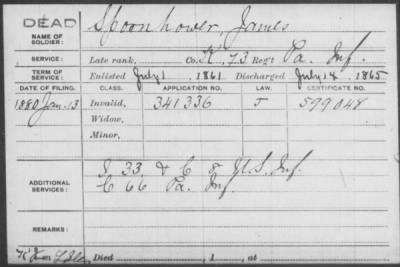 DEAD
NAME OF SOLDIER: Spoonhower, James
SERVICE: Late rank, Co. K, 73 Reg't Pa. Inf.
TERM OF SERVICE: Enlisted July 1 1861 Discharged July 14, 1865
DATE OF FILING. CLASS. APPLICATION NO. LAW. CERTIFICATE NO.
1880 Jan. 13 Invalid, 341336 599048
Widow,
Minor,
ADDITIONAL SERVICES: 33 & C 8 U.S. Inf.
C 66 Pa. Inf.
REMARKS:
Died , 1 , at